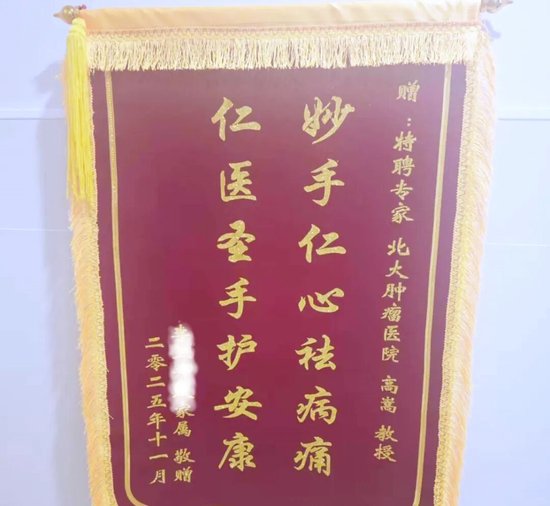 赠：特聘专家 北大肿瘤医院 高嵩 教授
妙手仁心祛病痛
仁医圣手护安康
家属 敬赠
二零二五年十一月